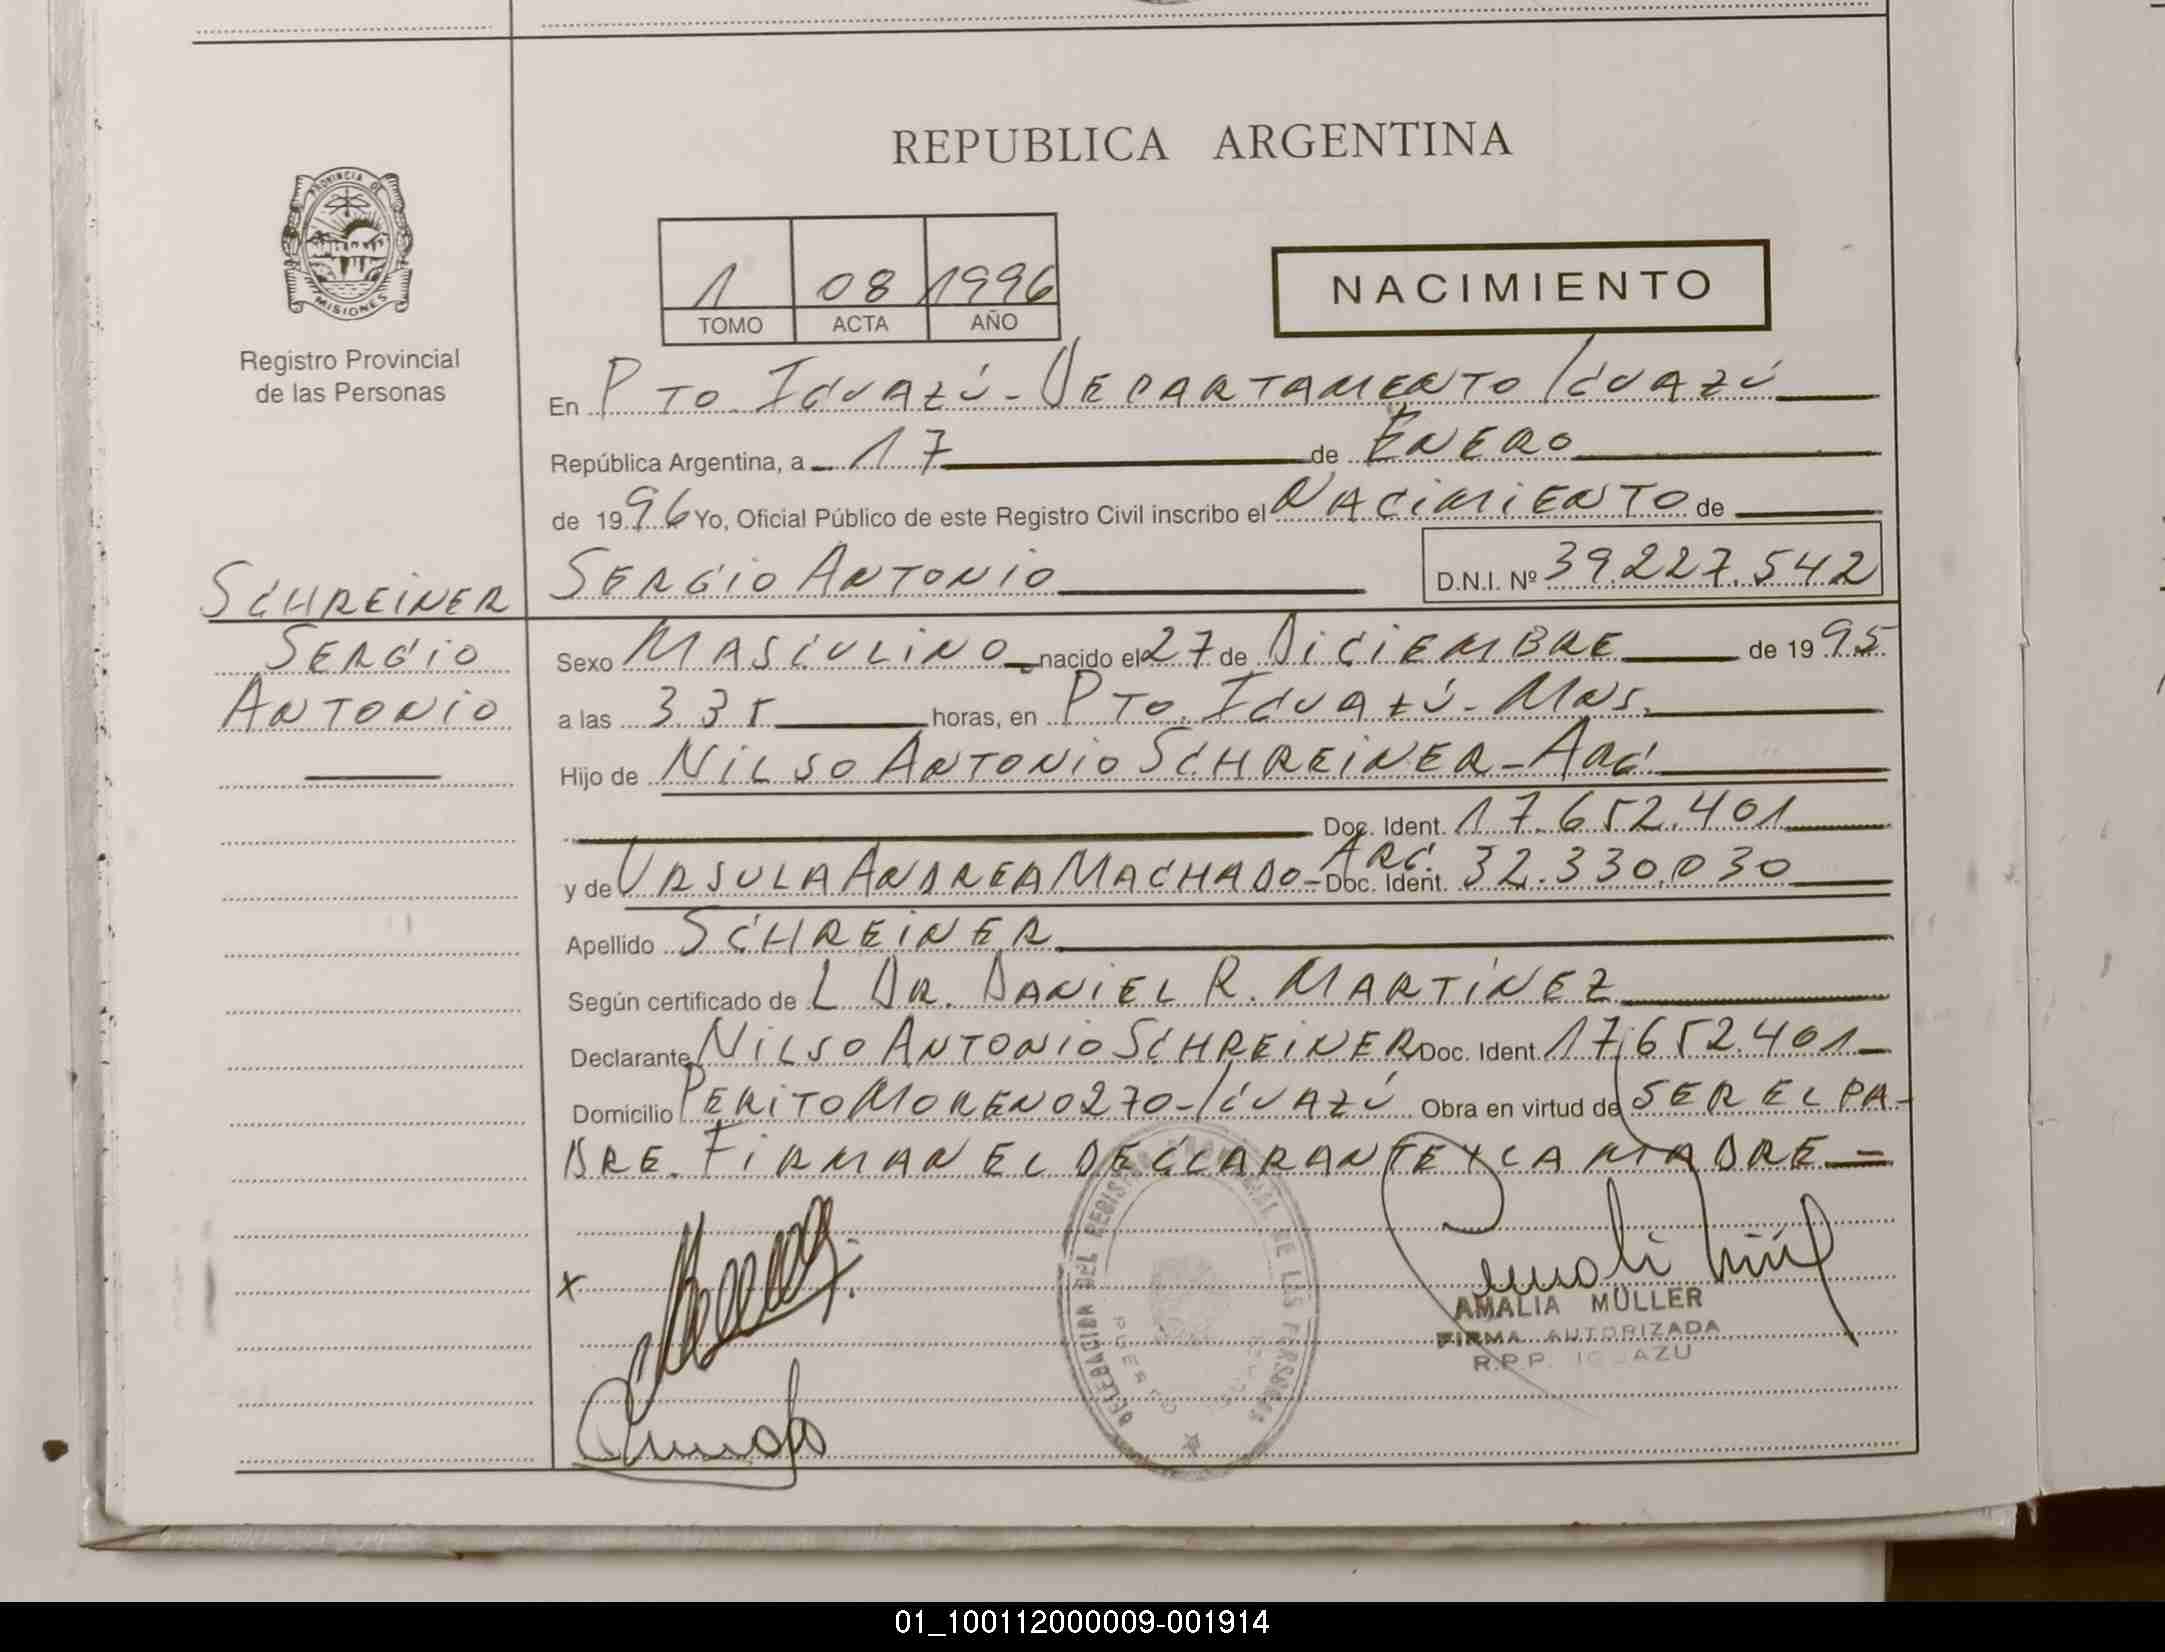 REPUBLICA ARGENTINA
PROVINCIA DE
MISIONES
Registro Provincial
de las Personas
1 08 1996
TOMO ACTA AÑO
NACIMIENTO
En PTO. IGUAZÚ - DEPARTAMENTO IGUAZÚ
República Argentina, a 17 de ENERO
de 1996 Yo, Oficial Público de este Registro Civil inscribo el NACIMIENTO de
SERGIO ANTONIO D.N.I. Nº 39.227.542
SCHREINER
SERGIO
ANTONIO
Sexo MASCULINO nacido el 27 de DICIEMBRE de 1995
a las 3.35 horas, en PTO. IGUAZÚ - MNS.
Hijo de NILSO ANTONIO SCHREINER - ARG.
Doc. Ident. 17.652.401
y de URSULA ANDREA MACHADO - ARG. Doc. Ident. 32.330.030
Apellido SCHREINER
Según certificado de L DR. DANIEL R. MARTÍNEZ
Declarante NILSO ANTONIO SCHREINER Doc. Ident. 17.652.401
Domicilio PERITO MORENO 270 - IGUAZÚ Obra en virtud de SER EL PA-
DRE. FIRMAN EL DECLARANTE Y LA MADRE
X
DELEGACION DEL REGISTRO PROVINCIAL DE LAS PERSONAS
PUERTO
AMALIA MÜLLER
FIRMA AUTORIZADA
R.P.P. IGUAZU
01_100112000009-001914